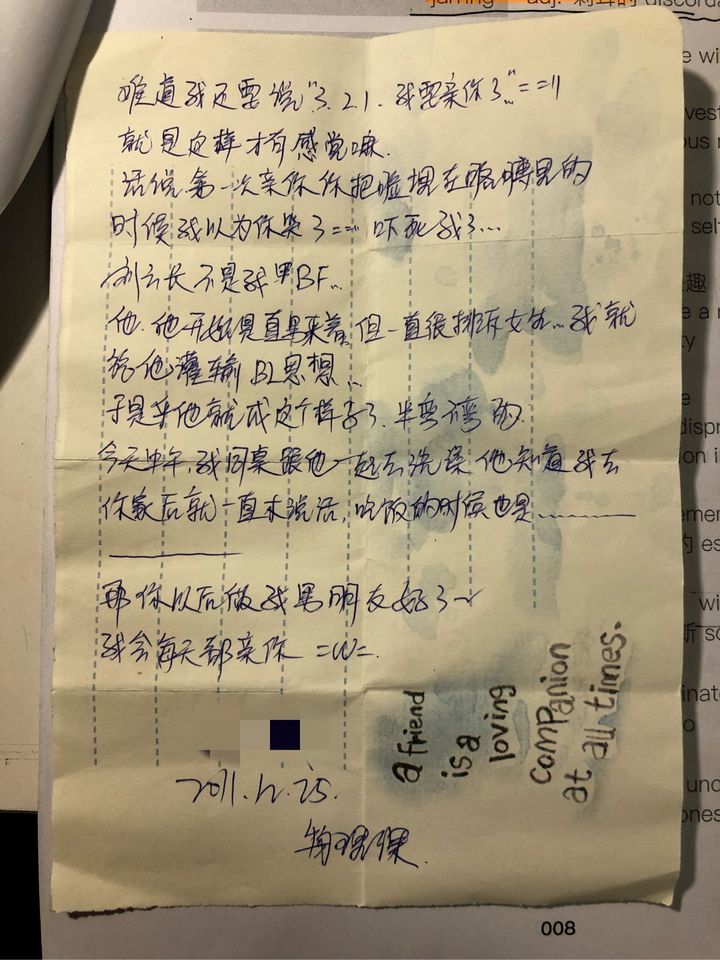 难道我还要说"3.2.1.我要亲你了…"==||
就是这样才有感觉嘛.
话说第一次亲你你把脸埋在胳膊里的
时候我以为你哭了==|| 吓死我了…
刘云长不是我男BF…
他.他开始是直男来着,但一直很排斥女生…我就
给他灌输BL思想…
于是乎他就成这个样子了.半弯弯的.
今天中午,我同桌跟他一起去洗澡.他知道我去
你家后就一直未说话,吃饭的时候也是………
那你以后做我男朋友好了~
我会每天都亲你 =W=.
2011.12.25.
物理课.
a friend
is a
loving
companion
at all times.
jarring
adj. 刺耳的
008